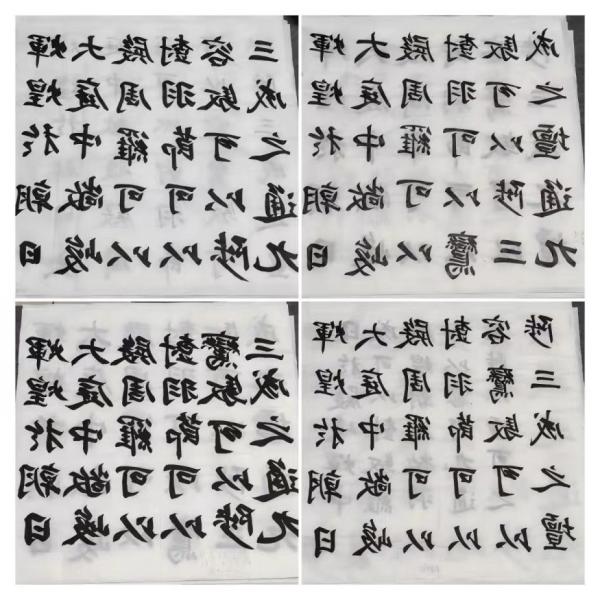 輝煌於朝日
大庭中敞峻
殿周羅可以
樹羽節可以
容馭可以陟
三成之通九
輝煌於朝日
大庭中敞峻
殿周羅可以
樹羽可以鸞
馭可以陟三
成之壇通九
輝煌於朝日
大庭中敞峻
殿周羅可以
樹羽節可以
鸞馭可以陟
三成之通九
輝煌於朝日
大庭中敞峻
殿周羅可以
樹羽節可以
容鸞馭可以
陟三成之壇